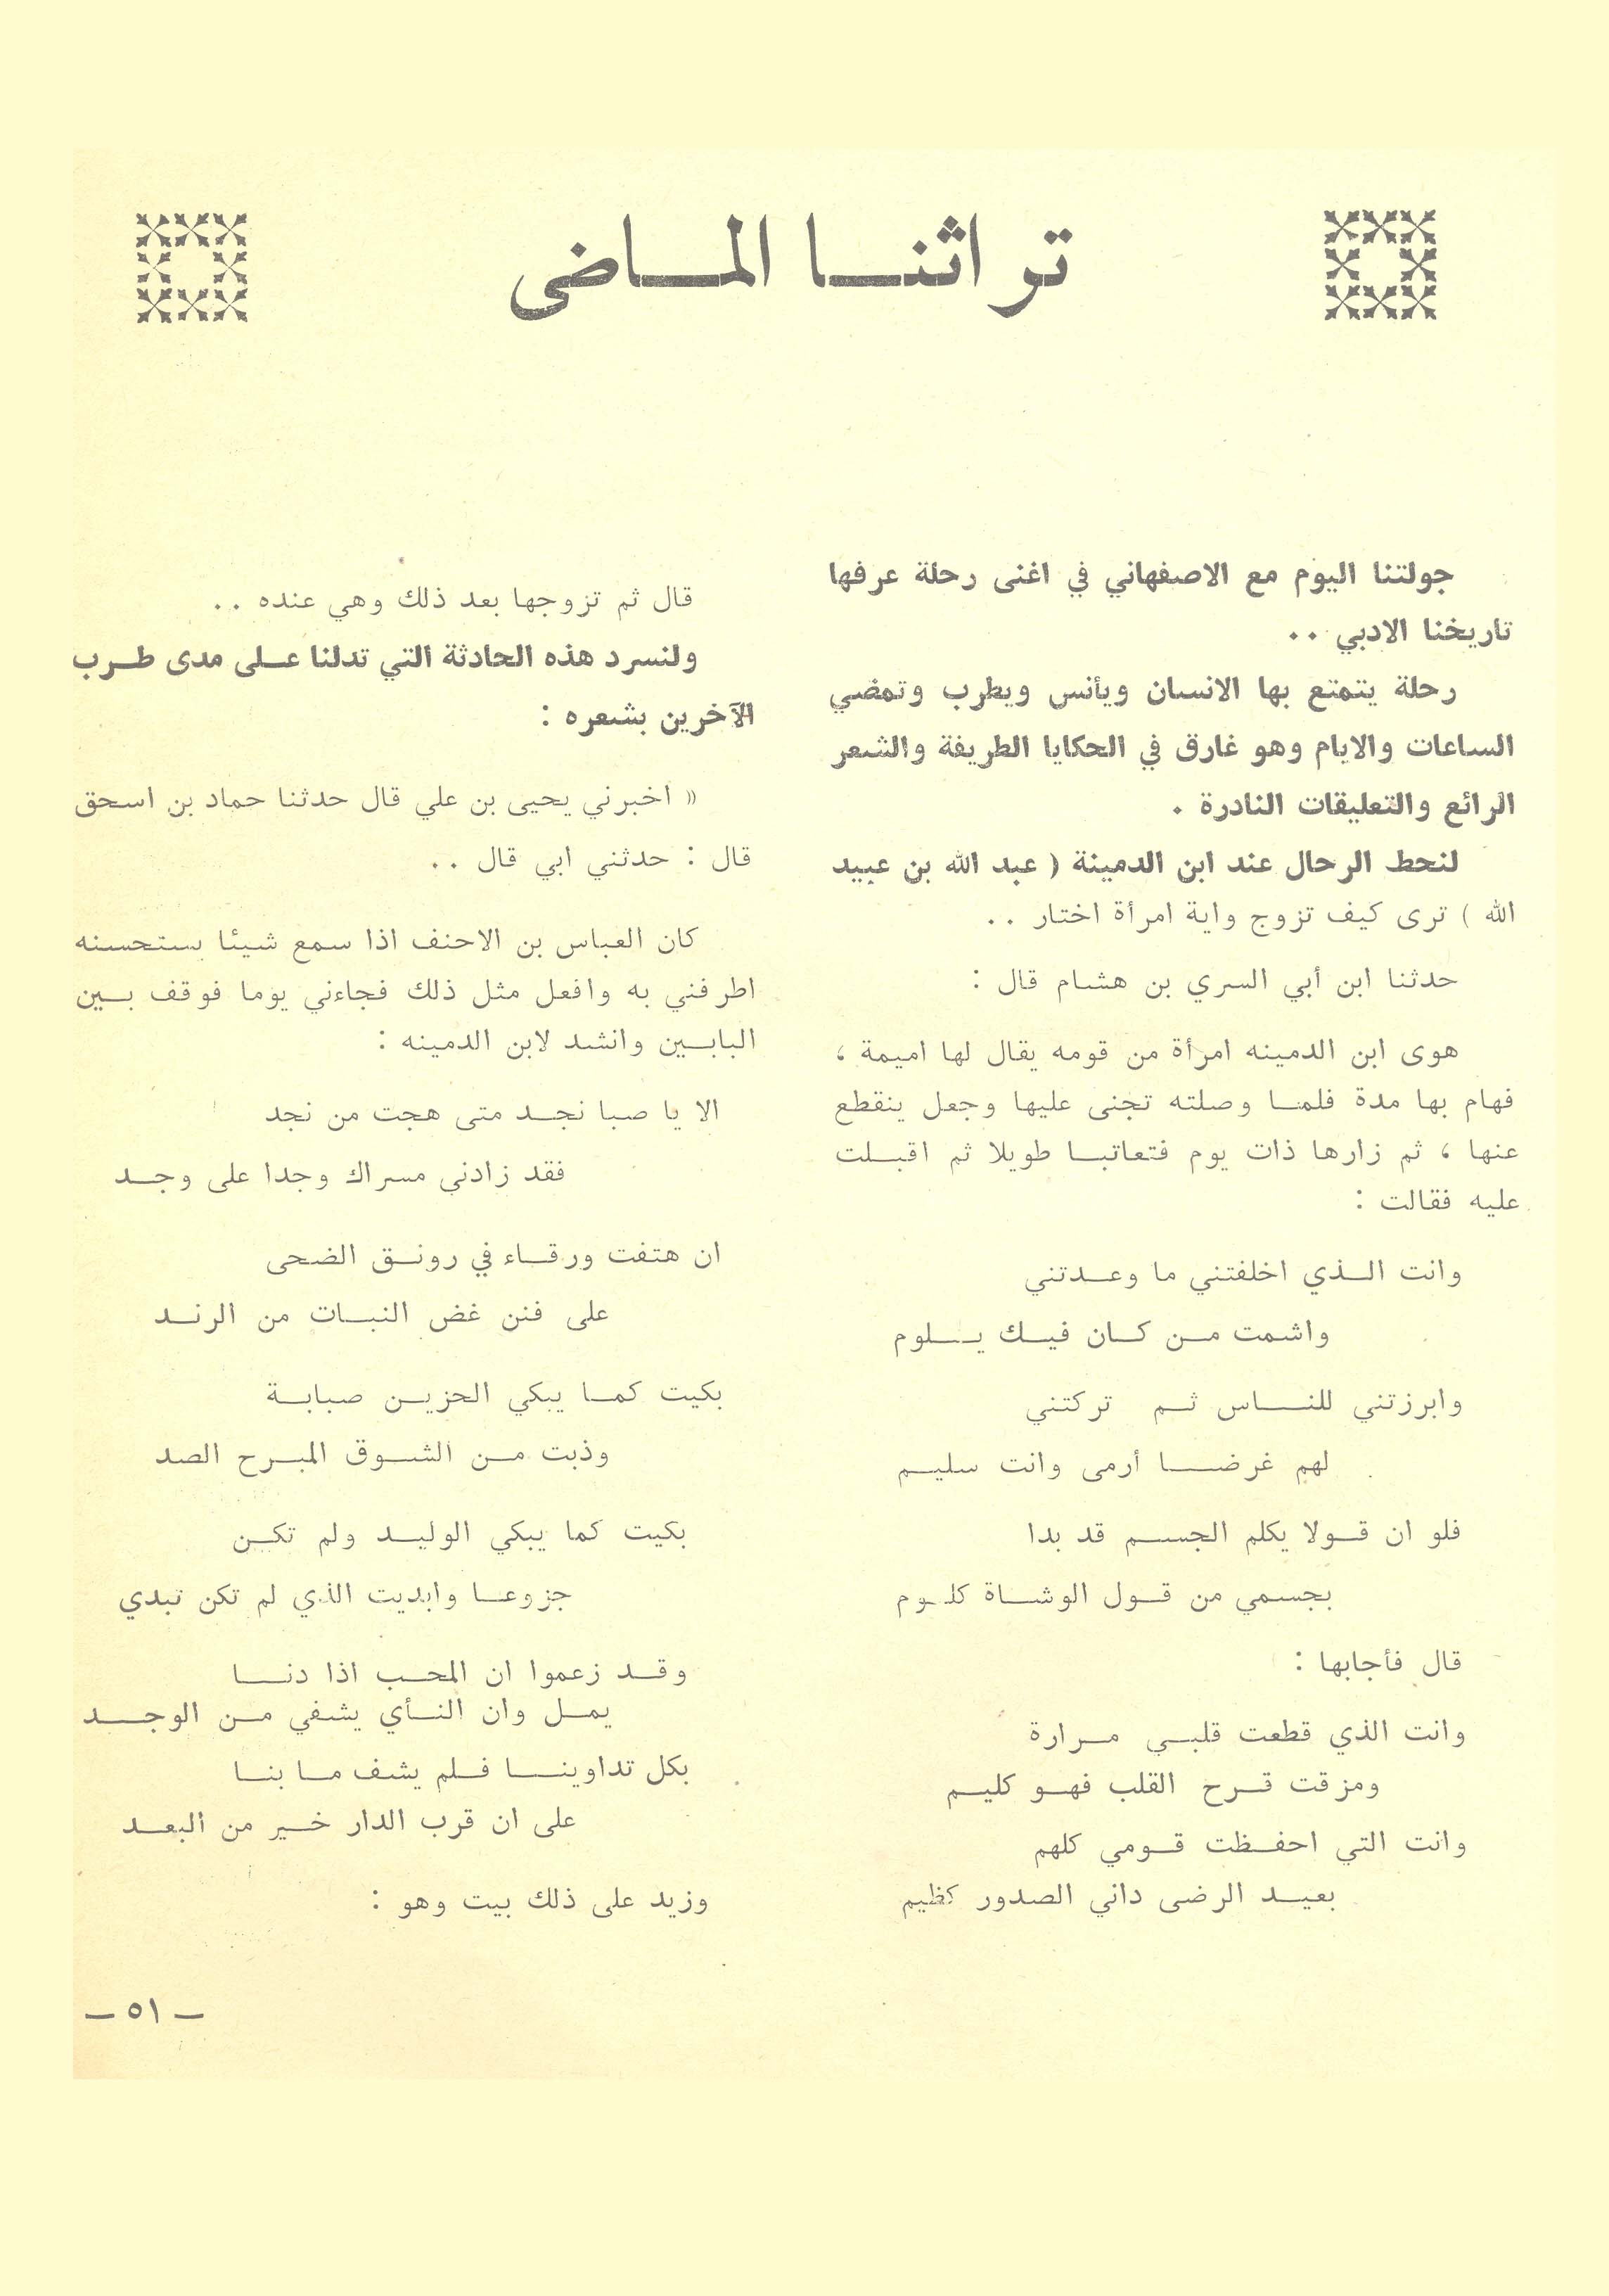 تراثنا الماضى
جولتنا اليوم مع الاصفهاني في اغنى رحلة عرفها
تاريخنا الادبي ..
رحلة يتمتع بها الانسان ويأنس ويطرب وتمضي
الساعات والايام وهو غارق في الحكايا الطريفة والشعر
الرائع والتعليقات النادرة .
لنحط الرحال عند ابن الدمينة ( عبد الله بن عبيد
الله ) ترى كيف تزوج واية امرأة اختار ..
حدثنا ابن أبي السري بن هشام قال :
هوى ابن الدمينه امرأة من قومه يقال لها اميمة ،
فهام بها مدة فلما وصلته تجنى عليها وجعل ينقطع
عنها ، ثم زارها ذات يوم فتعاتبا طويلا ثم اقبلت
عليه فقالت :
وانت الذي اخلفتني ما وعدتني
واشمت من كان فيك يلوم
وابرزتني للناس ثم تركتني
لهم غرضا أرمى وانت سليم
فلو ان قولا يكلم الجسم قد بدا
بجسمي من قول الوشاة كلوم
قال فأجابها :
وانت الذي قطعت قلبي مرارة
ومزقت قرح القلب فهو كليم
وانت التي احفظت قومي كلهم
بعيد الرضى داني الصدور كظيم
قال ثم تزوجها بعد ذلك وهي عنده ..
ولنسرد هذه الحادثة التي تدلنا على مدى طرب
الآخرين بشعره :
« اخبرني يحيى بن علي قال حدثنا حماد بن اسحق
قال : حدثني ابي قال ..
كان العباس بن الاحنف اذا سمع شيئا يستحسنه
اطرفني به وافعل مثل ذلك فجاءني يوما فوقف بين
البابين وانشد لابن الدمينه :
الا يا صبا نجد متى هجت من نجد
فقد زادني مسراك وجدا على وجد
ان هتفت ورقاء في رونق الضحى
على فنن غض النبات من الرند
بكيت كما يبكي الحزين صبابة
وذبت من الشوق المبرح الصد
بكيت كما يبكي الوليد ولم تكن
جزوعا وابديت الذي لم تكن تبدي
وقد زعموا ان المحب اذا دنا
يمل وان النأي يشفي من الوجد
بكل تداوينا فلم يشف ما بنا
على ان قرب الدار خير من البعد
وزيد على ذلك بيت وهو :
– ٥١ –